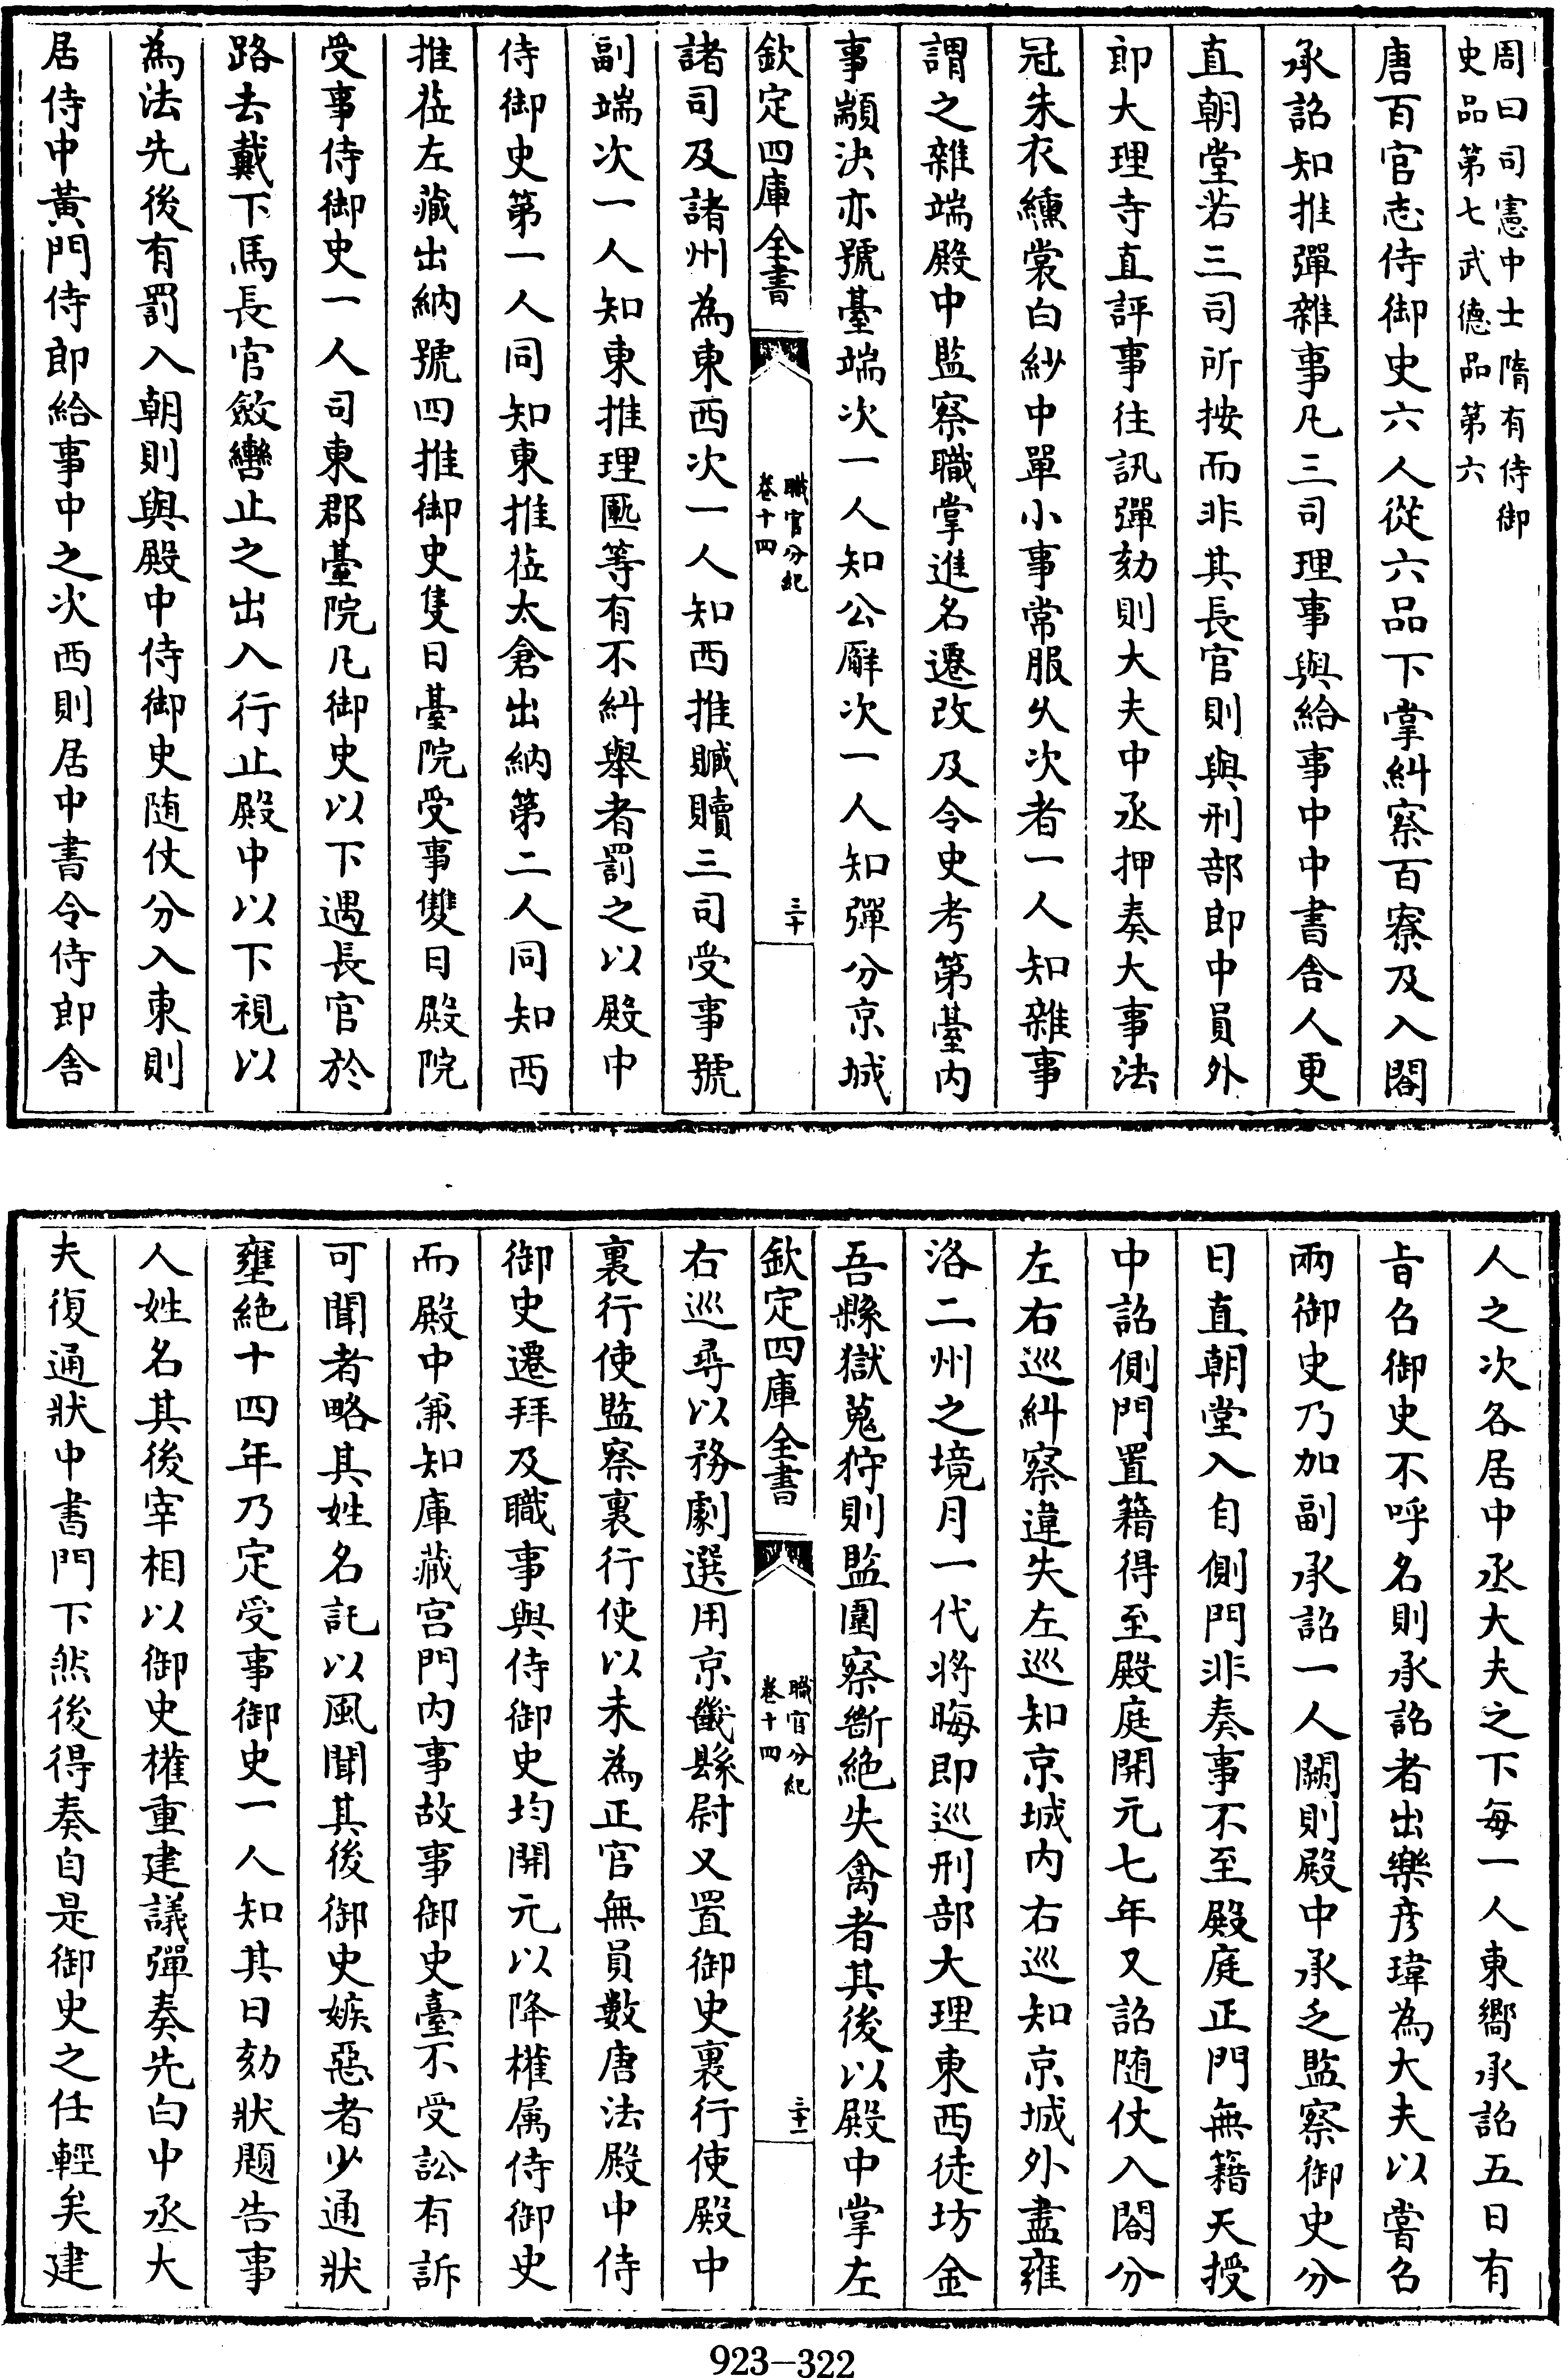 周曰司憲中士隋有侍御
史品第七武德品第六
唐百官志侍御史六人從六品下掌糾察百寮及入閤
承詔知推彈雜事凡三司理事與給事中中書舍人更
直朝堂若三司所按而非其長官則與刑部郎中員外
郎大理寺直評事往訊彈劾則大夫中丞押奏大事法
冠朱衣纁裳白紗中單小事常服久次者一人知雜事
謂之雜端殿中監察職掌進名遷改及令史考第臺內
事顓決亦號臺端次一人知公廨次一人知彈分京城
欽定四庫全書
職官分紀
卷十四
三十
諸司及諸州為東西次一人知西推贓贖三司受事號
副端次一人知東推理匭等有不糾舉者罰之以殿中
侍御史第一人同知東推莅太倉出納第二人同知西
推莅左藏出納號四推御史隻日臺院受事雙日殿院
受事侍御史一人司東郡臺院凡御史以下遇長官於
路去戴下馬長官斂轡止之出入行止殿中以下視以
為法先後有罰入朝則與殿中侍御史随仗分入東則
居侍中黃門侍郎給事中之次西則居中書令侍郎舍
人之次各居中丞大夫之下每一人東嚮承詔五日有
旨召御史不呼名則承詔者出樂彦瑋為大夫以嘗召
兩御史乃加副承詔一人闕則殿中承乏監察御史分
日直朝堂入自側門非奏事不至殿庭正門無籍天授
中詔側門置籍得至殿庭開元七年又詔随仗入閤分
左右巡糾察違失左巡知京城内右巡知京城外盡雍
洛二州之境月一代將晦即巡刑部大理東西徒坊金
吾縣獄蒐狩則監圍察斷絶失禽者其後以殿中掌左
欽定四庫全書
職官分紀
卷十四
三十一
右巡尋以務劇選用京畿縣尉又置御史裏行使殿中
裏行使監察裏行使以未為正官無員數唐法殿中侍
御史遷拜及職事與侍御史均開元以降權属侍御史
而殿中兼知庫藏宫門内事故事御史臺不受訟有訴
可聞者略其姓名託以風聞其後御史嫉惡者少通狀
壅絶十四年乃定受事御史一人知其日劾狀題告事
人姓名其後宰相以御史權重建議彈奏先白中丞大
夫復通狀中書門下然後得奏自是御史之任輕矣建
923-322